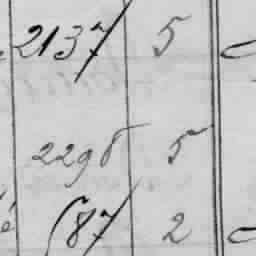 2137 5
2296 5
é 587 2